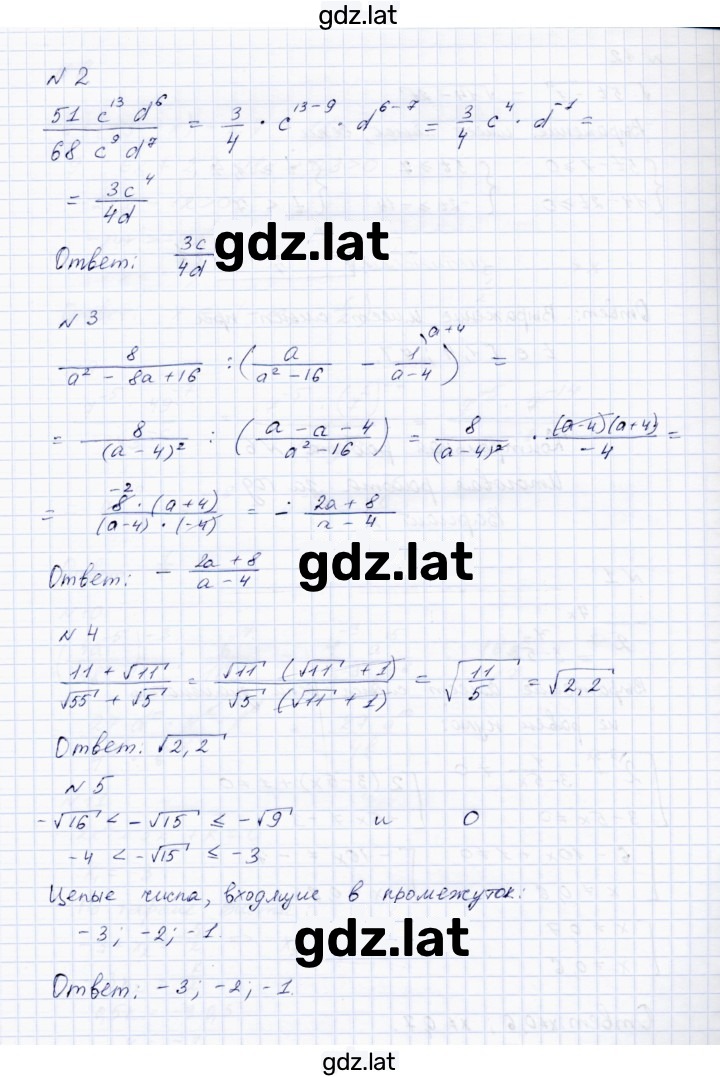 gdz.lat
N 2
51 c^13 d^6 / 68 c^9 d^7 = 3/4 · c^(13-9) · d^(6-7) = 3/4 c^4 · d^-1 =
= 3c^4 / 4d
Ответ: 3c / 4d
gdz.lat
N 3
8 / (a² - 8a + 16) : (a / (a² - 16) - 1^(a+4) / (a - 4)) =
= 8 / (a - 4)² : ((a - a - 4) / (a² - 16)) = 8 / (a - 4)² · (a - 4)(a + 4) / -4 =
= -2 8 · (a + 4) / (a - 4) · (-4) = - (2a + 8) / (a - 4)
gdz.lat
Ответ: - (2a + 8) / (a - 4)
N 4
(11 + √11) / (√55 + √5) = √11 (√11 + 1) / √5 (√11 + 1) = √(11/5) = √2,2
Ответ: √2,2
N 5
-√16 < -√15 ≤ -√9 и 0
-4 < -√15 ≤ -3
Целые числа, входящие в промежуток:
-3; -2; -1.
gdz.lat
Ответ: -3; -2; -1.
gdz.lat